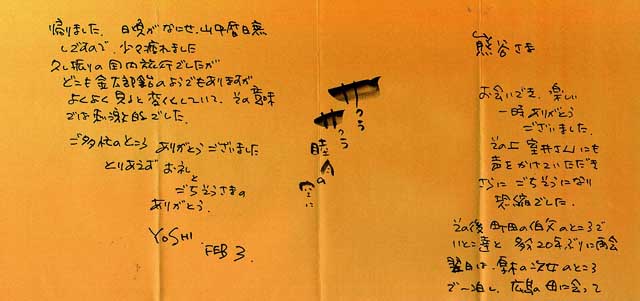 熊谷さま
お会いでき、楽しい
一時ありがとう
ございました。
その上 室井さんにも
声をかけていただき
さらに ごちそうになり
恐縮でした。
その後 町田の伯父のところで
いとこ達と 多分20年ぶりに再会
翌日は、厚木の次女のところ
で一泊し、広島の母に会って
睦月の
空に
帰りました。日頃がなにせ、山中暦日無
しですので、少々疲れました
久し振りの国内旅行でしたが
どこも金太郎飴のようでもありますが
よくよく見ると変化していて、その意味
では刺激的でした。
ご多忙のところ ありがとうございました
とりあえず お礼
と
ごちそうさまの
ありがとう.
YOSHI.
FEB 3.